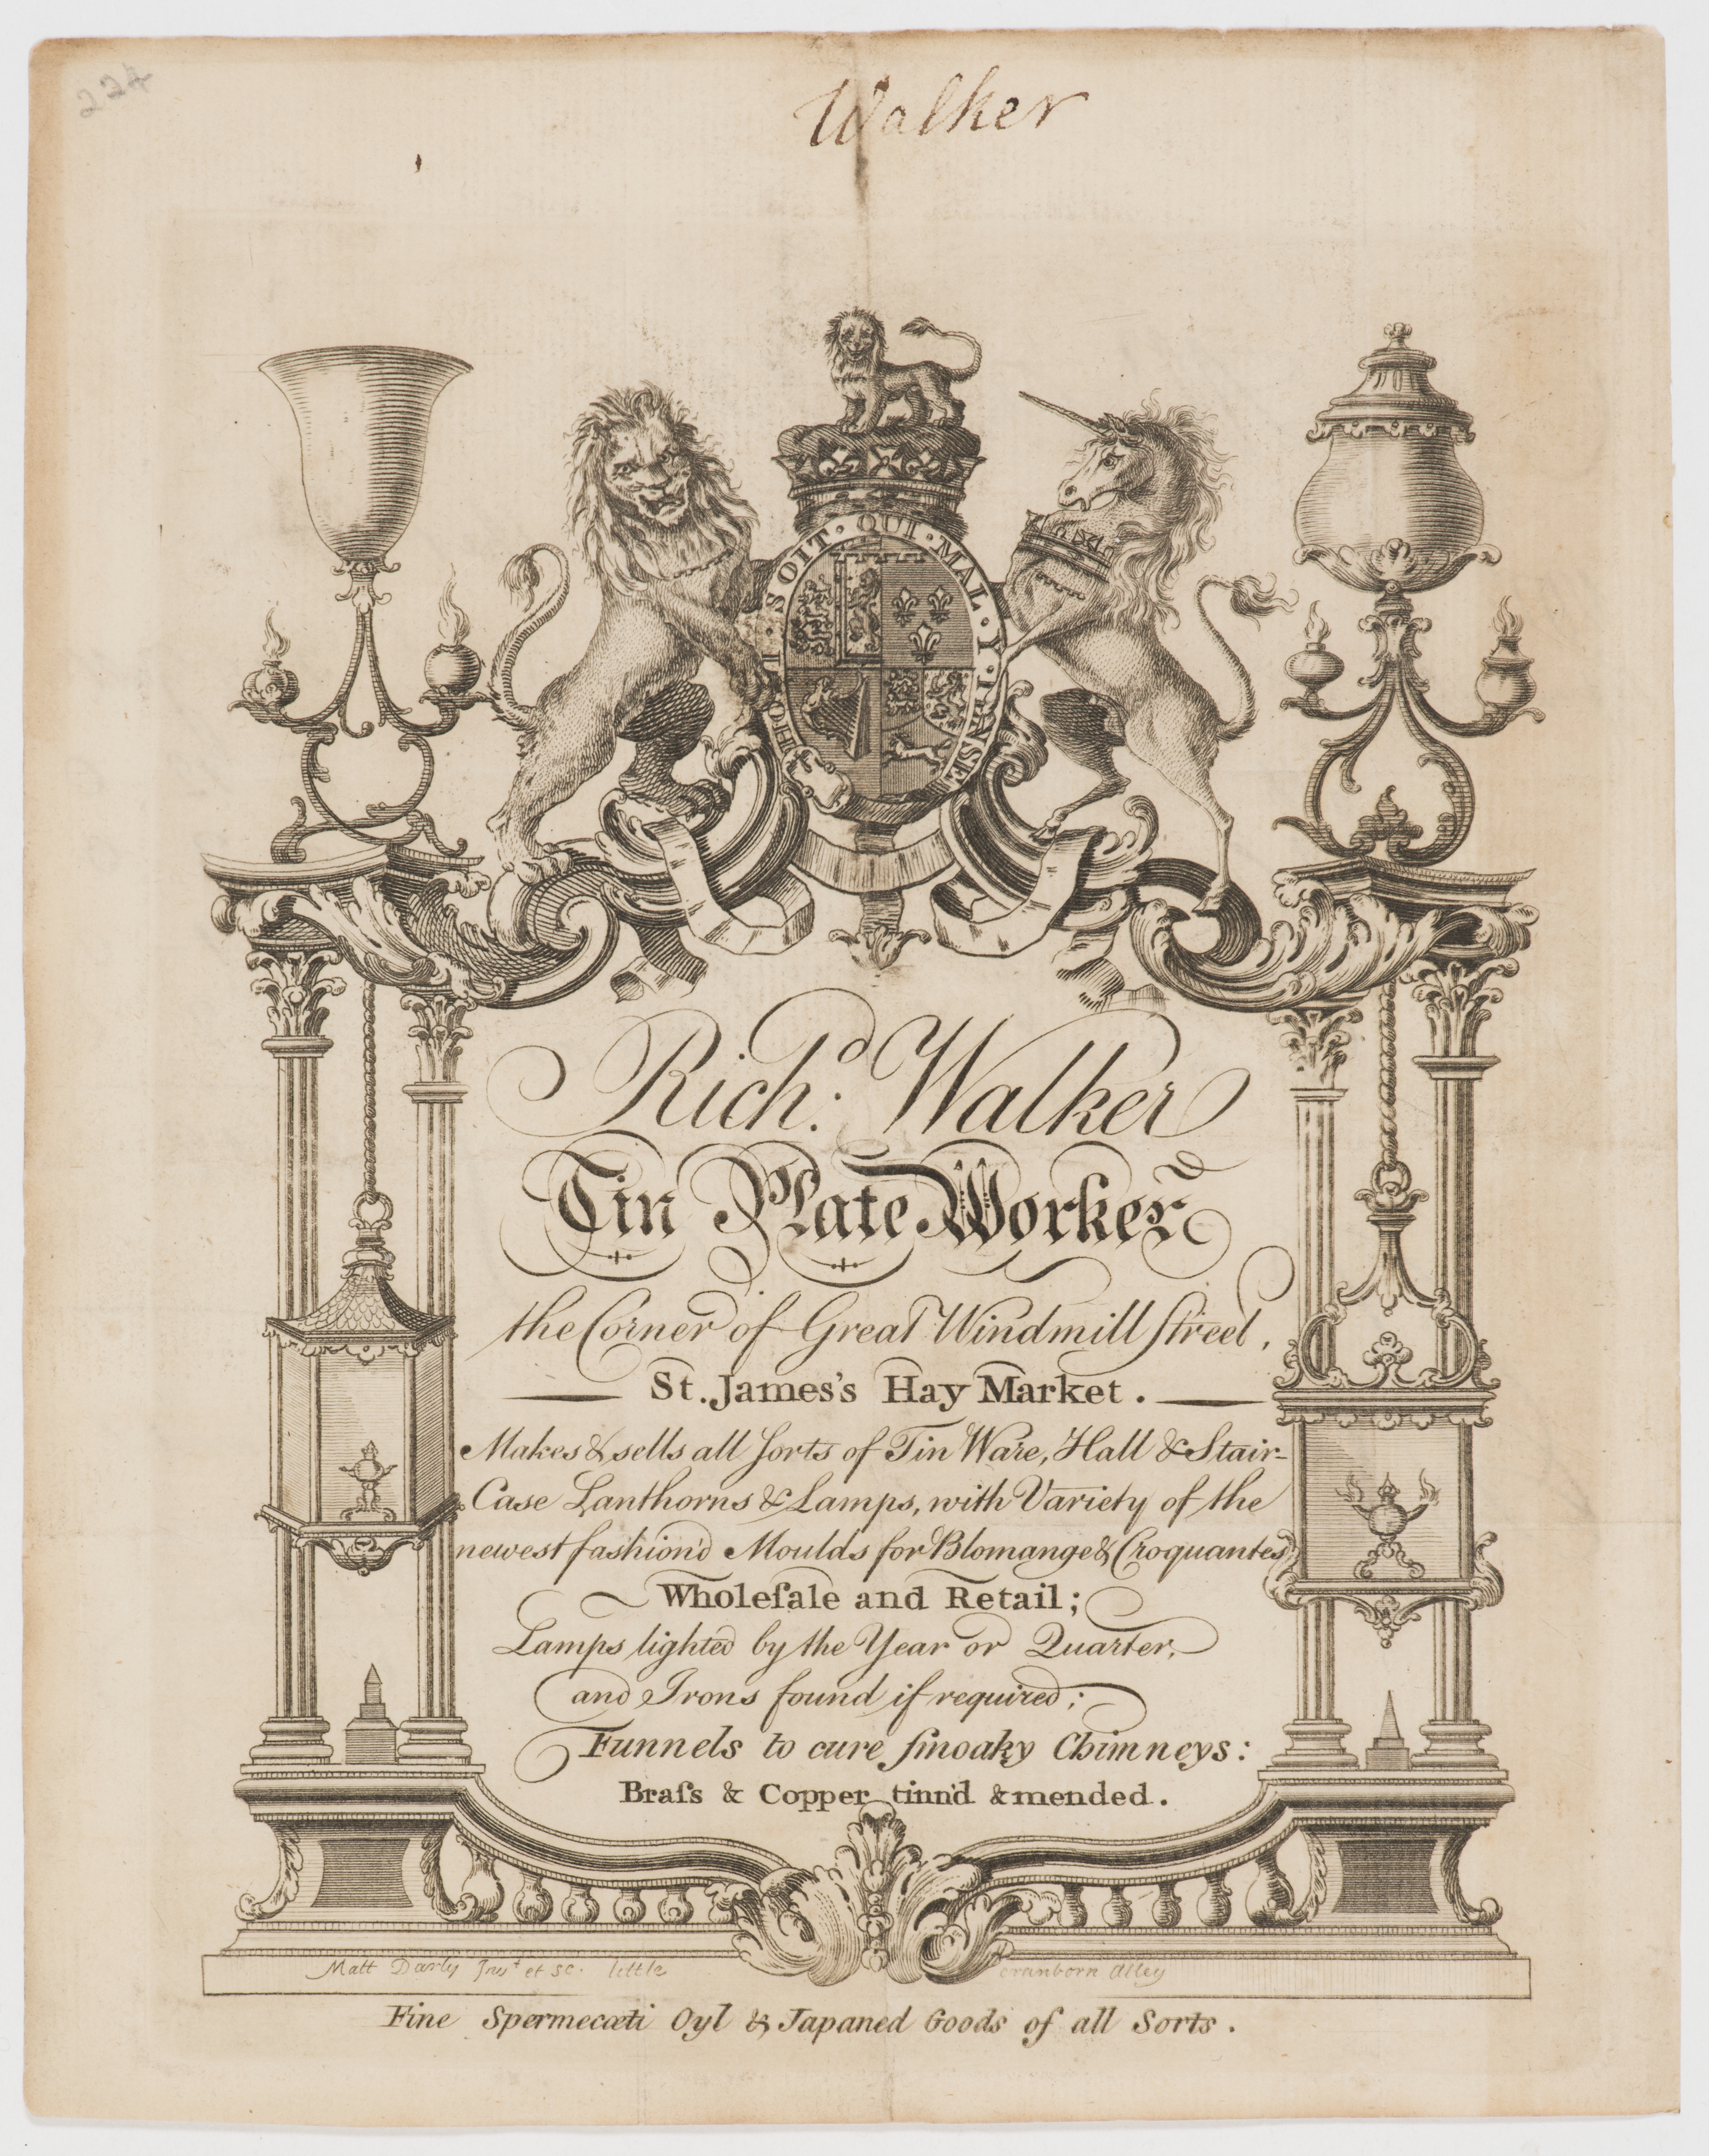 224
Walker
HONI · SOIT · QUI · MAL · Y · PENSE
Rich.ᵈ Walker
Tin Plate Worker
the Corner of Great Windmill Street,
St. James's Hay Market.
Makes & sells all ſorts of Tin Ware, Hall & Stair-
Case Lanthorns & Lamps, with Variety of the
newest fashion'd Moulds for Blomange & Croquantes
Wholeſale and Retail;
Lamps lighted by the Year or Quarter,
and Irons found if required;
Funnels to cure ſmoaky Chimneys:
Braſs & Copper tinn'd & mended.
Matt Darly Invᵗ et sc. little Cranborn Alley
Fine Spermecœti Oyl & Japaned Goods of all Sorts.